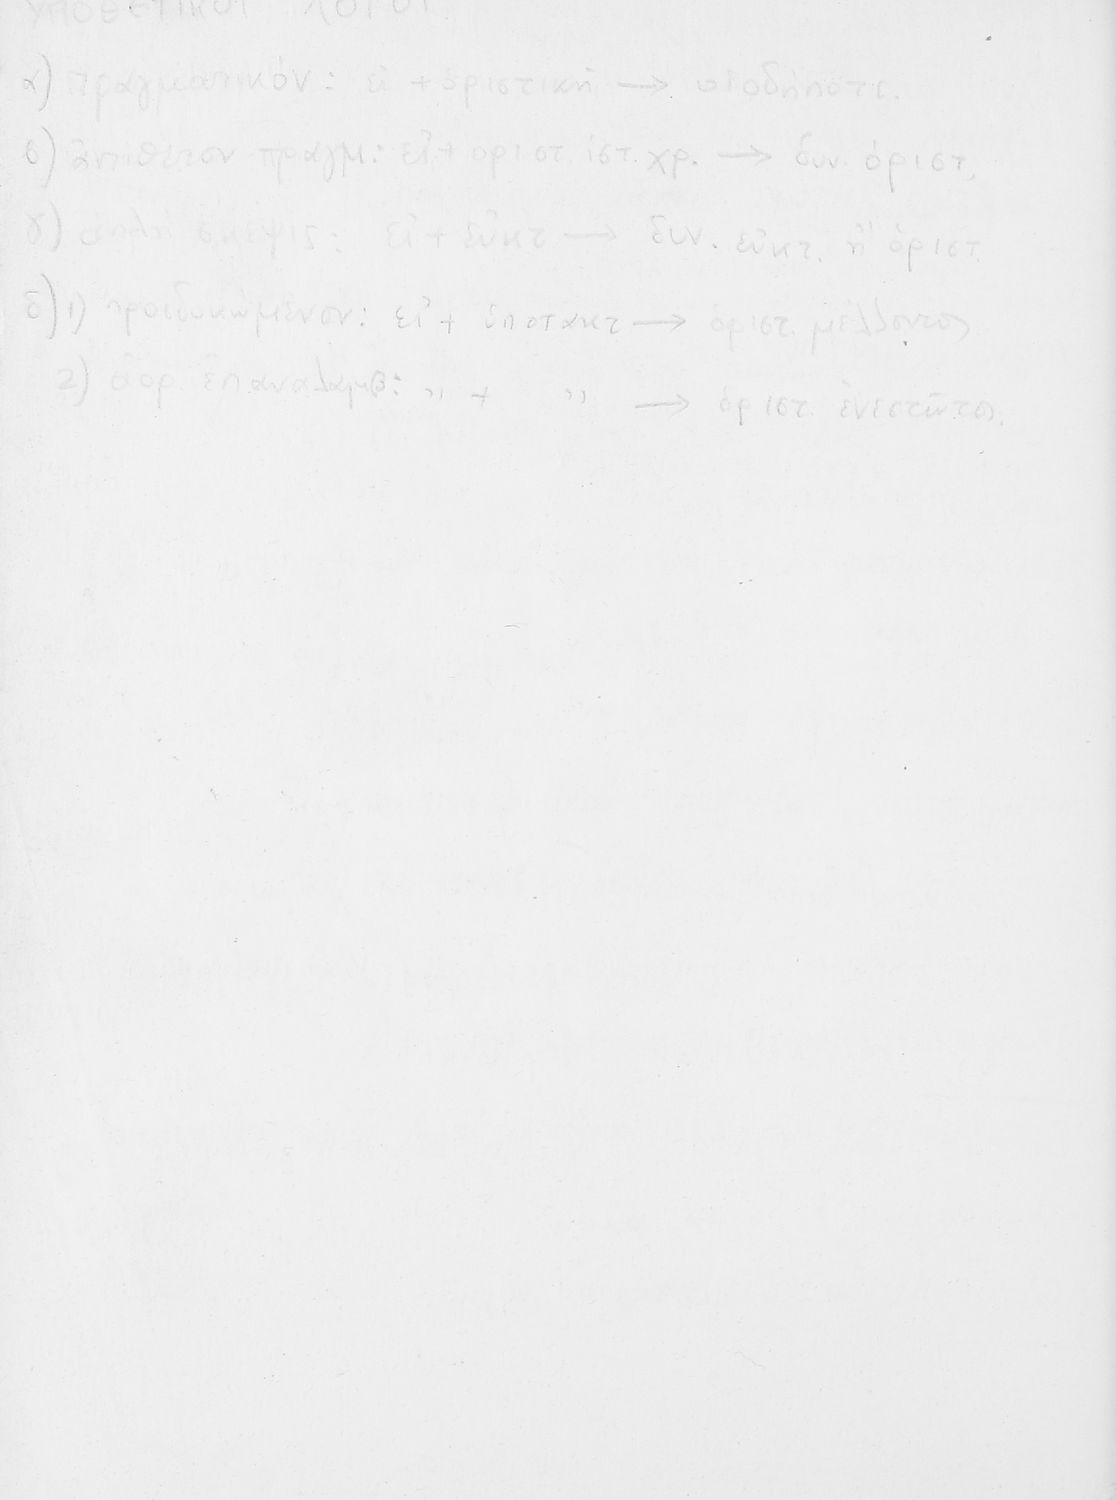 ΥΠΟΘΕΤΙΚΟΙ ΛΟΓΟΙ
α) πραγματικόν: εἰ + ὁριστική → οἱοδήποτε.
β) ἀντίθετον πραγμ: εἰ + οριστ ἱστ. χρ. → δυν. ὁριστ.
γ) ἁπλῆ σκέψις: εἰ + εὐκτ → δυν. εὐκτ. ἢ ὁριστ.
δ) 1) προσδοκώμενον: εἰ + ὑποτακτ → ὁριστ. μέλλοντος
2) ἀόρ. ἐπαναλαμβ: ,, + ,, → ὁριστ. ἐνεστῶτος.